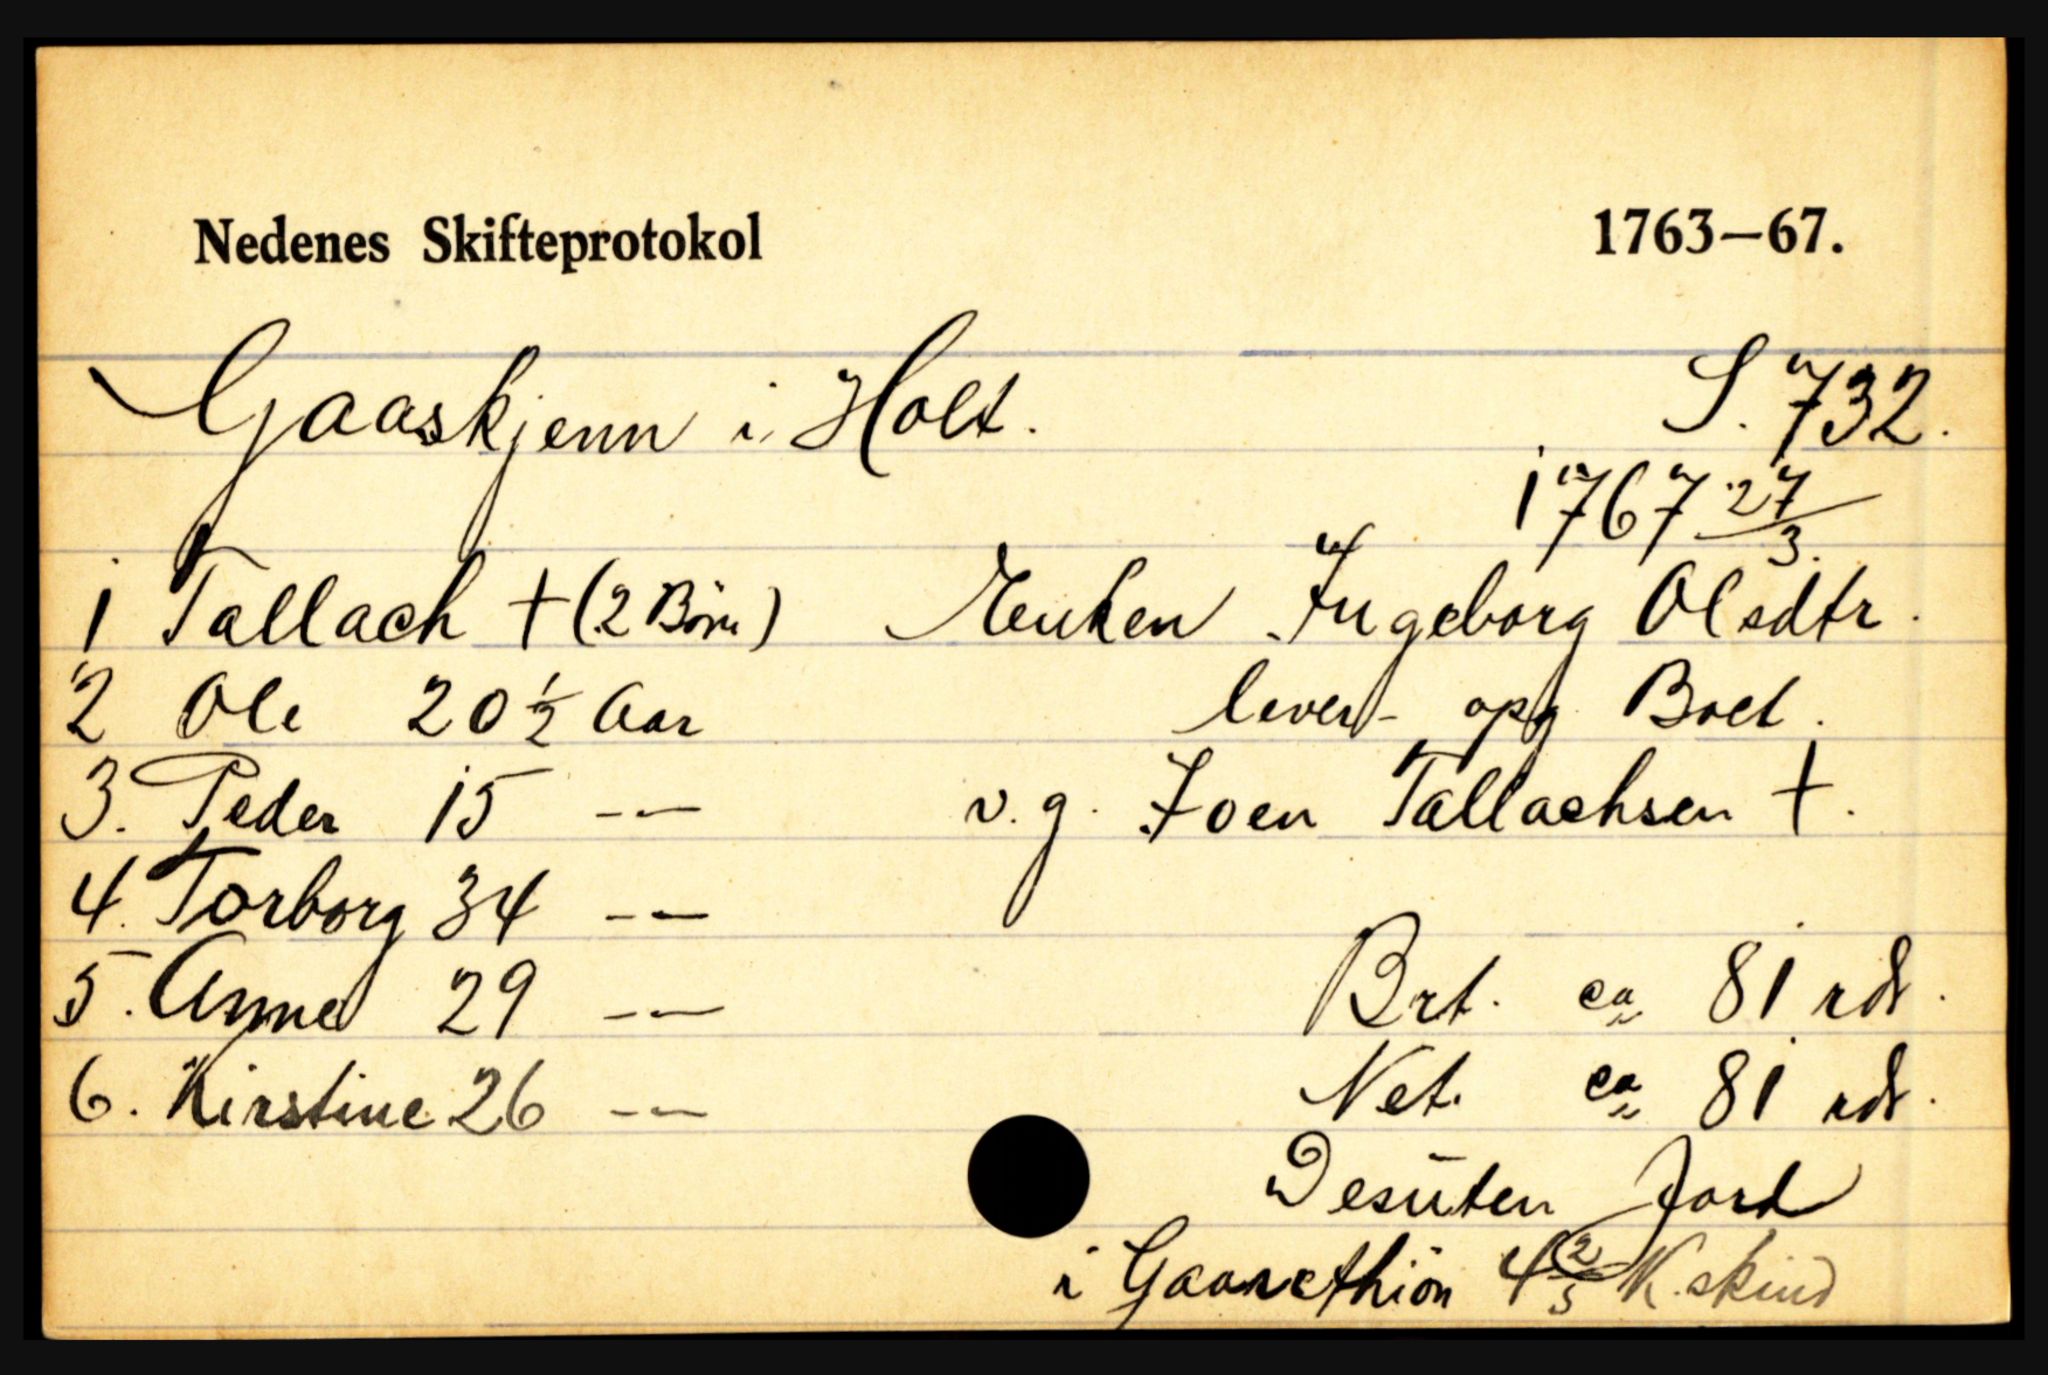 Nedenes Skifteprotokol 1763—67.
Gaaskjenn i Holt. S. 732.
1767 27/3.
1 Tallach † (2 Børn) Enken Ingeborg Olsdtr.
2 Ole 20 1/2 Aar lever - opg Boet.
3. Peder 15 -- v. g. Joen Tallachsen †.
4. Torborg 34 --
5. Anne 29 -- Brt. ca 81 rdl.
6. Kirstine 26 -- Net. ca 81 rdl.
Desuten Jord
i 4 2/3 K. skind